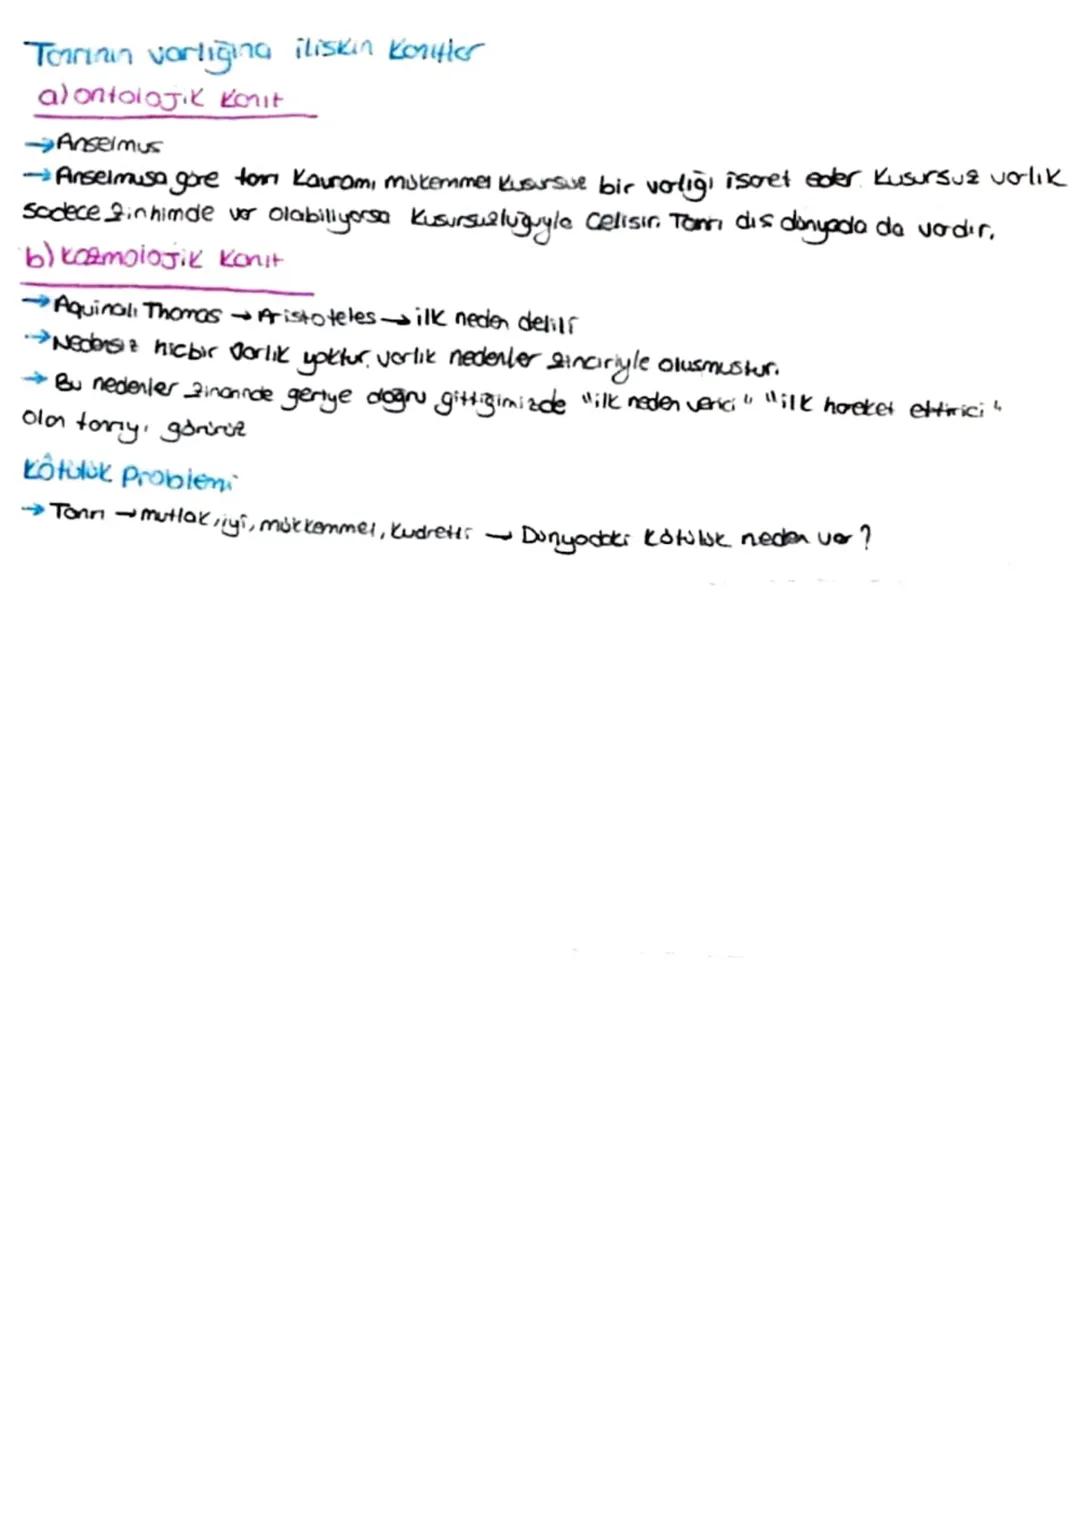 Tanrının varlığına iliskin kanıtlar
a) ontolojik kanıt
→ Anselmus
→ Anselmusa göre tanrı kavramı, mükemmel kusursuz bir varlığı isaret eder. Kusursuz varlık
sadece zinhimde var olabiliyorsa kusursuzluğuyla celisir. Tanrı dıs dünyada da vardır.
b) kozmolojik kanıt
→ Aquinalı Thomas → Aristoteles → ilk neden delili
→ Nedensiz hicbir varlık yoktur, varlık nedenler zinciriyle olusmustur.
→ Bu nedenler zincirinde geriye doğru gittiğimizde "ilk neden verici" "ilk hareket ettirici"
olan tanrıyı görürüz
Kötülük Problemi
→ Tanrı → mutlak, iyi, mükkemmel, kudretli → Dünyadaki kötülük neden var?